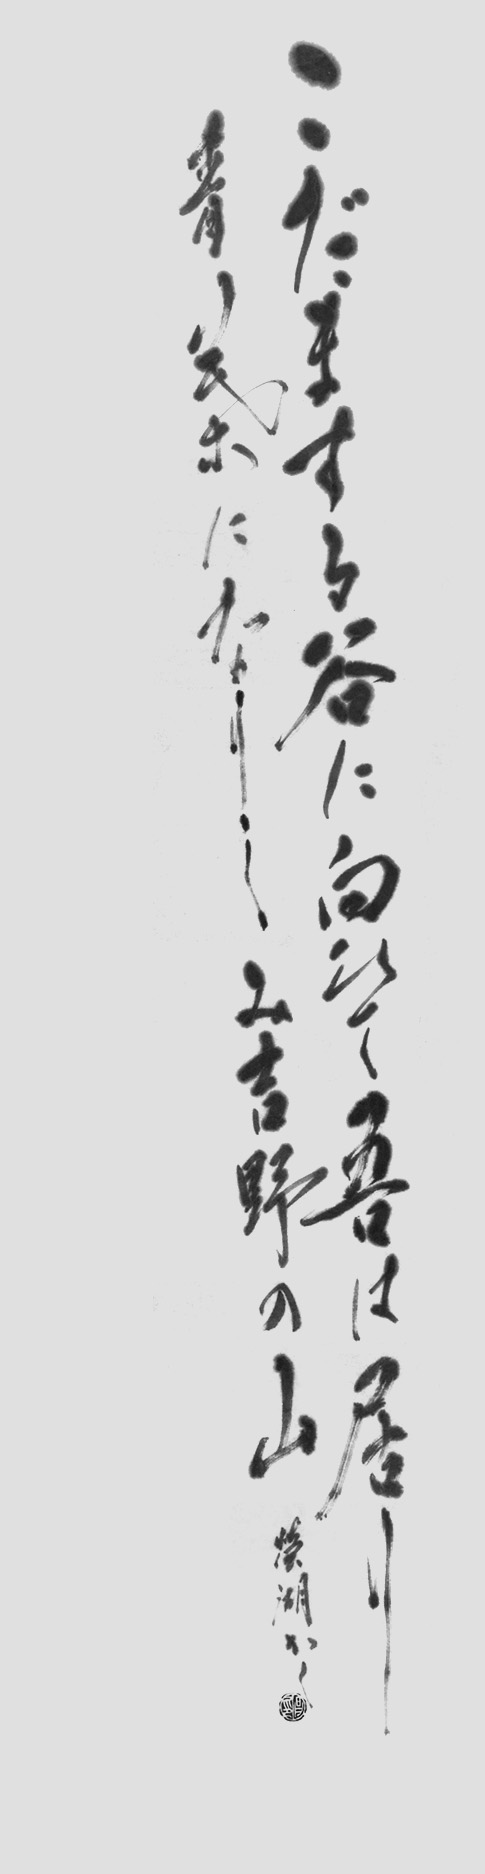 こだまする谷に向ひて吾は居り
青く茂になりし み吉野の山
湖かく